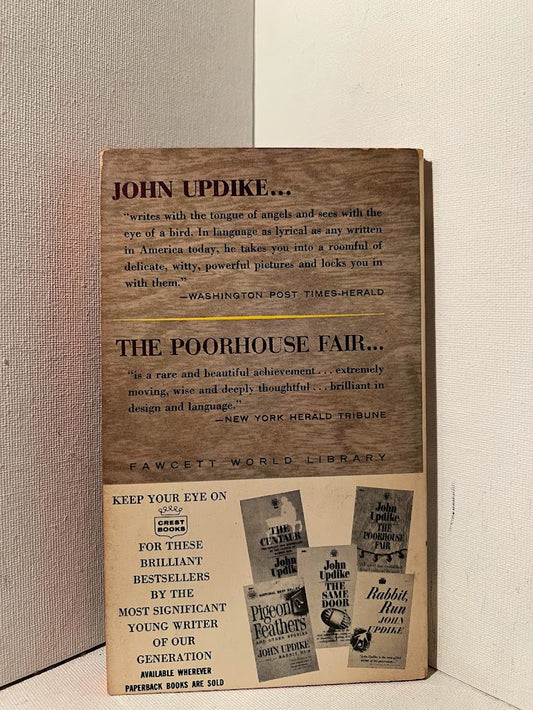 JOHN UPDIKE...
"writes with the tongue of angels and sees with the
eye of a bird. In language as lyrical as any written
in America today, he takes you into a roomful of
delicate, witty, powerful pictures and locks you in
with them."
—WASHINGTON POST TIMES-HERALD
THE POORHOUSE FAIR...
"is a rare and beautiful achievement... extremely
moving, wise and deeply thoughtful... brilliant in
design and language."
—NEW YORK HERALD TRIBUNE
FAWCETT WORLD LIBRARY
KEEP YOUR EYE ON
CREST
BOOKS
FOR THESE
BRILLIANT
BESTSELLERS
BY THE
MOST SIGNIFICANT
YOUNG WRITER
OF OUR
GENERATION
AVAILABLE WHEREVER
PAPERBACK BOOKS ARE SOLD
THE
CENTAUR
John
Updike
John
Updike
THE
POORHOUSE
FAIR
John
Updike
THE
SAME
DOOR
Pigeon
Feathers
AND OTHER STORIES
JOHN UPDIKE
Rabbit,
Run
JOHN
UPDIKE